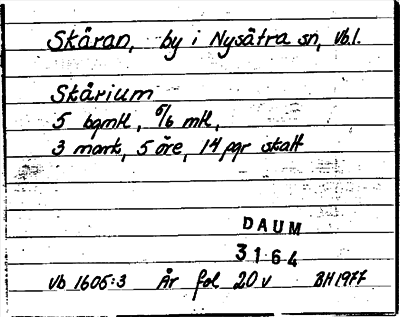 Skåran, by i Nysätra sn, Vb.l.
Skårium
5 bgmtl, 5/6 mtl,
3 mark, 5 öre, 14 pgr skatt
DAUM
3164
Vb 1605:3 År fol 20 v BH 1977